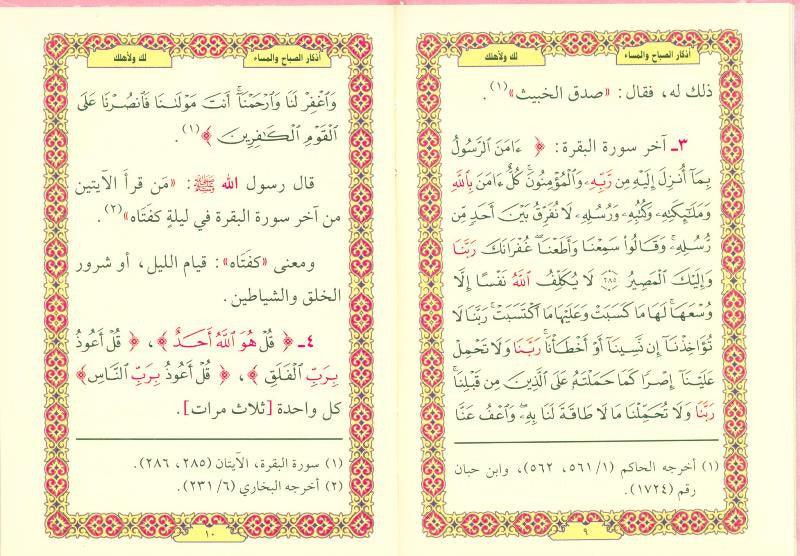 أذكار الصباح والمساء
لك ولأهلك
ذلك له، فقال: «صدق الخبيث»(١).
٣ـ آخر سورة البقرة: ﴿ ءَامَنَ ٱلرَّسُولُ
بِمَآ أُنزِلَ إِلَيْهِ مِن رَّبِّهِۦ وَٱلْمُؤْمِنُونَ ۚ كُلٌّ ءَامَنَ بِٱللَّهِ
وَمَلَـٰٓئِكَتِهِۦ وَكُتُبِهِۦ وَرُسُلِهِۦ لَا نُفَرِّقُ بَيْنَ أَحَدٍ مِّن
رُّسُلِهِۦ ۚ وَقَالُوا۟ سَمِعْنَا وَأَطَعْنَا ۖ غُفْرَانَكَ رَبَّنَا
وَإِلَيْكَ ٱلْمَصِيرُ ۝٢٨٥ لَا يُكَلِّفُ ٱللَّهُ نَفْسًا إِلَّا
وُسْعَهَا ۚ لَهَا مَا كَسَبَتْ وَعَلَيْهَا مَا ٱكْتَسَبَتْ ۗ رَبَّنَا لَا
تُؤَاخِذْنَآ إِن نَّسِينَآ أَوْ أَخْطَأْنَا ۚ رَبَّنَا وَلَا تَحْمِلْ
عَلَيْنَآ إِصْرًا كَمَا حَمَلْتَهُۥ عَلَى ٱلَّذِينَ مِن قَبْلِنَا ۚ
رَبَّنَا وَلَا تُحَمِّلْنَا مَا لَا طَاقَةَ لَنَا بِهِۦ ۖ وَٱعْفُ عَنَّا
(١) أخرجه الحاكم (١/ ٥٦١، ٥٦٢)، وابن حبان
رقم (١٧٢٤).
٩
أذكار الصباح والمساء
لك ولأهلك
وَٱغْفِرْ لَنَا وَٱرْحَمْنَآ ۚ أَنتَ مَوْلَىٰنَا فَٱنصُرْنَا عَلَى
ٱلْقَوْمِ ٱلْكَـٰفِرِينَ ﴾(١).
قال رسول الله ﷺ: «مَن قرأ الآيتين
من آخر سورة البقرة في ليلةٍ كفتَاه»(٢).
ومعنى «كفتَاه»: قيام الليل، أو شرور
الخلق والشياطين.
٤ـ ﴿ قُلْ هُوَ ٱللَّهُ أَحَدٌ ﴾، ﴿ قُلْ أَعُوذُ
بِرَبِّ ٱلْفَلَقِ ﴾، ﴿ قُلْ أَعُوذُ بِرَبِّ ٱلنَّاسِ ﴾
كل واحدة [ثلاث مرات].
(١) سورة البقرة، الآيتان (٢٨٥، ٢٨٦).
(٢) أخرجه البخاري (٦/ ٢٣١).
١٠